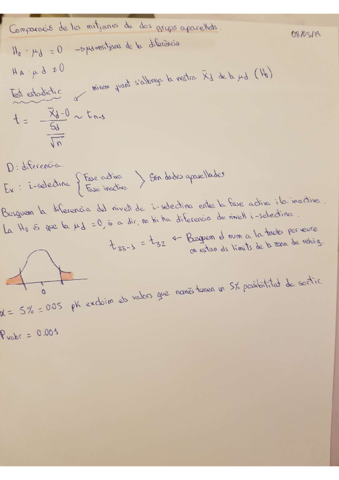 Comparació de les mitjanes de dos grups aparellats
08/05/19
H0 = μd = 0 → μd=mitjana de la diferència
HA μd ≠ 0
Test estadístic → mirem quant s'allunya la nostra x̄d de la μd (H0)
t = x̄d - 0 / Sd / √n ~ tn-1
D: diferència
Ex: i-selectina { Fase activa
Fase inactiva } Són dades aparellades
Busquem la diferència del nivell de i-selectina entre la fase activa i la inactiva.
La H0 és que la μd = 0, és a dir, no hi ha diferència de nivell i-selectina.
t33-1 = t32 ← Busquem el num a la taula per veure
on estan els límits de la zona de rebuig.
0
α = 5% = 0.05 pk excloïm els valors que només tenen un 5% possibilitat de sortir.
Pvalor = 0.001